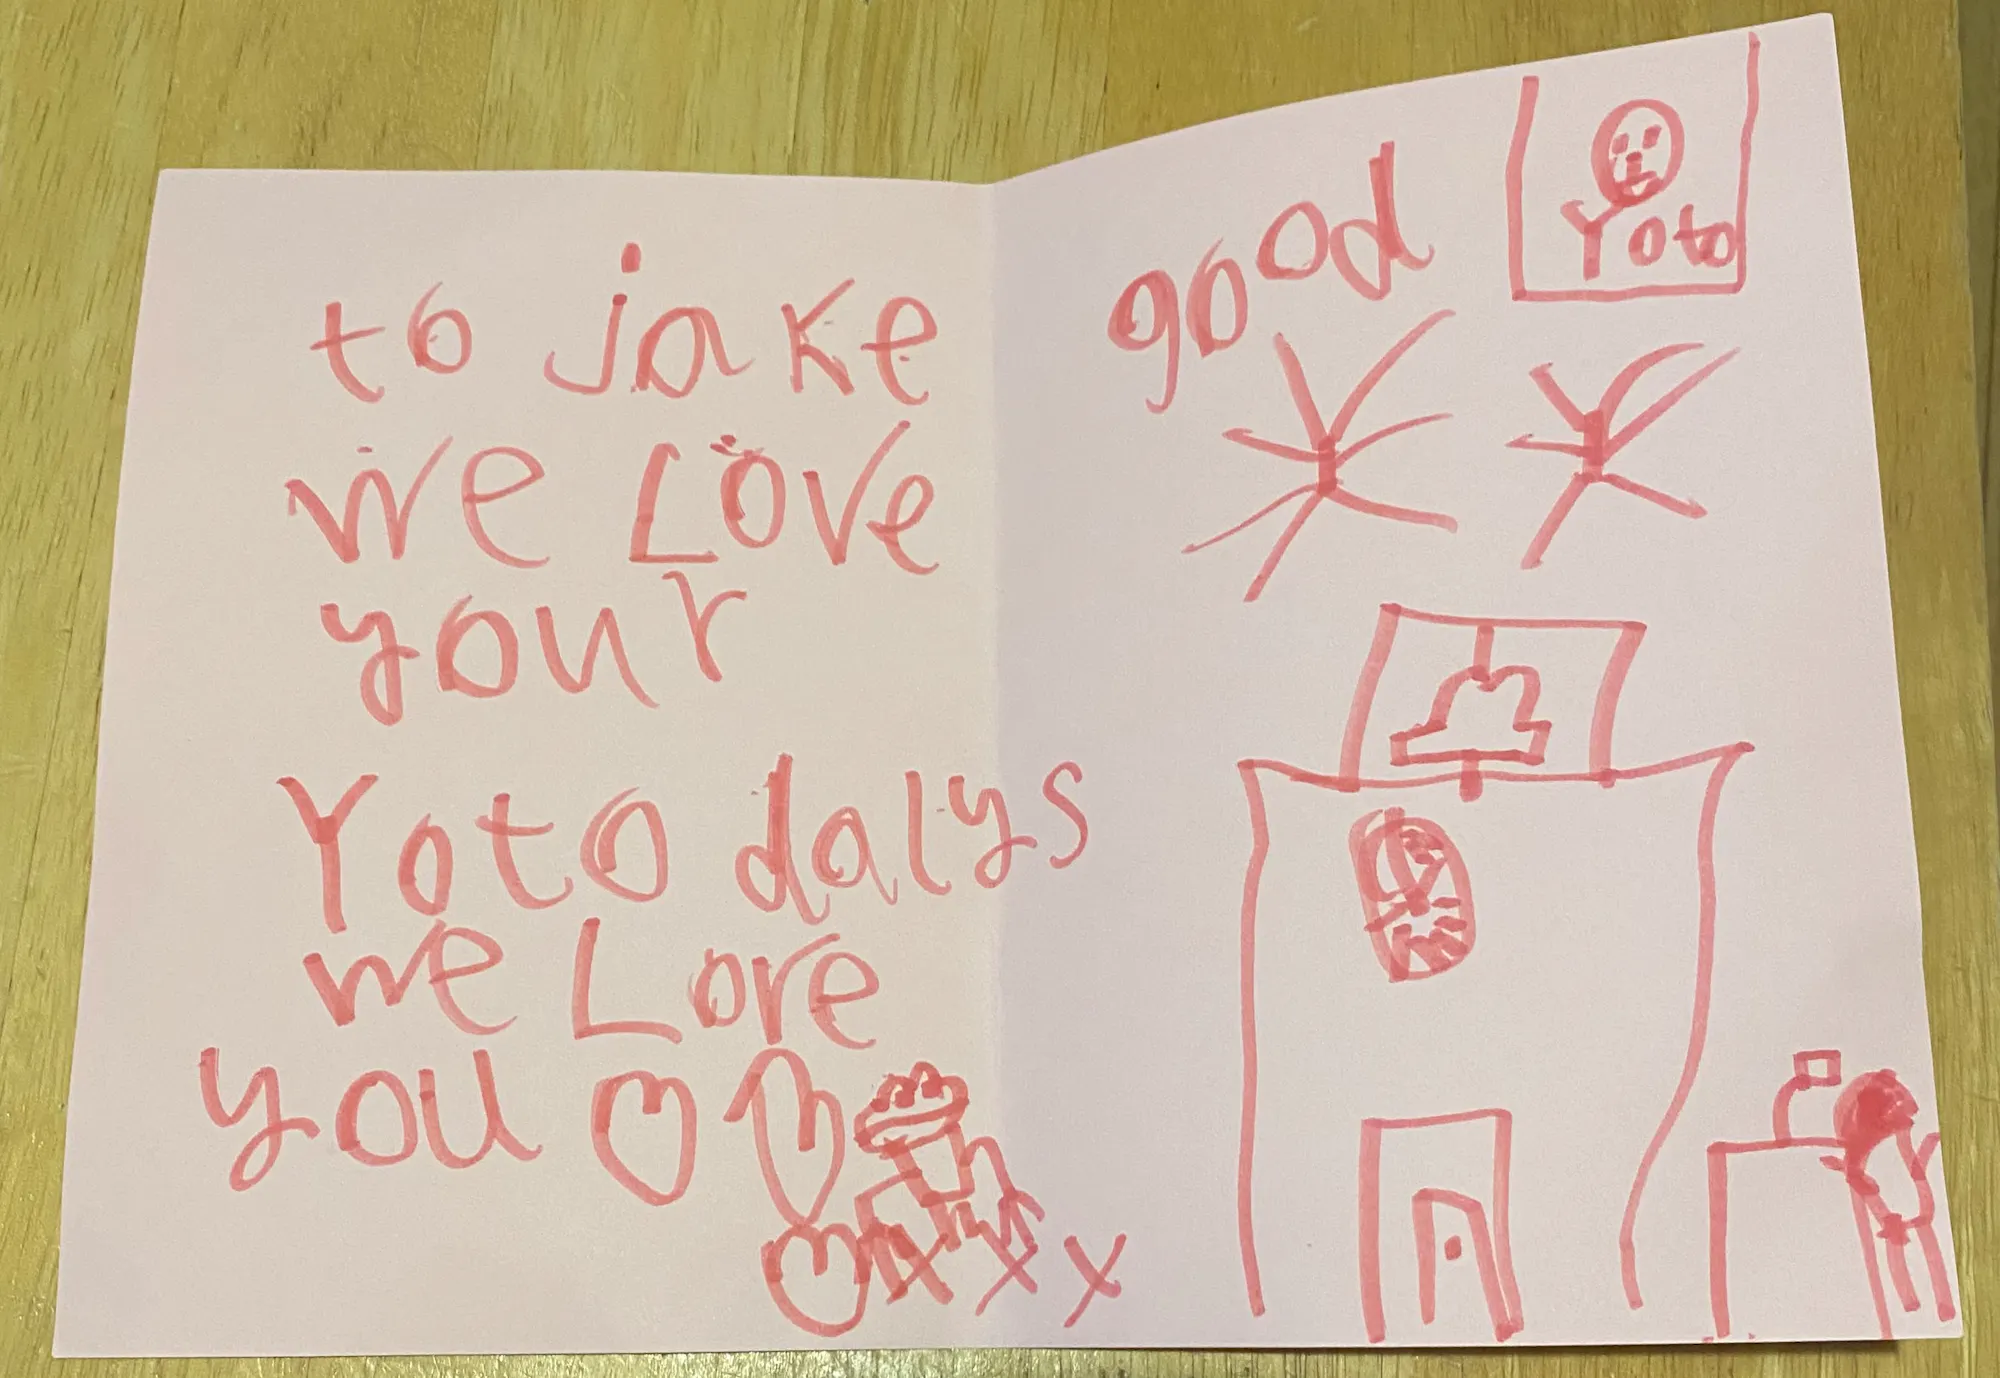 to jake
we Love
your
Yoto dalys
we Love
you
x x x
good
Yoto